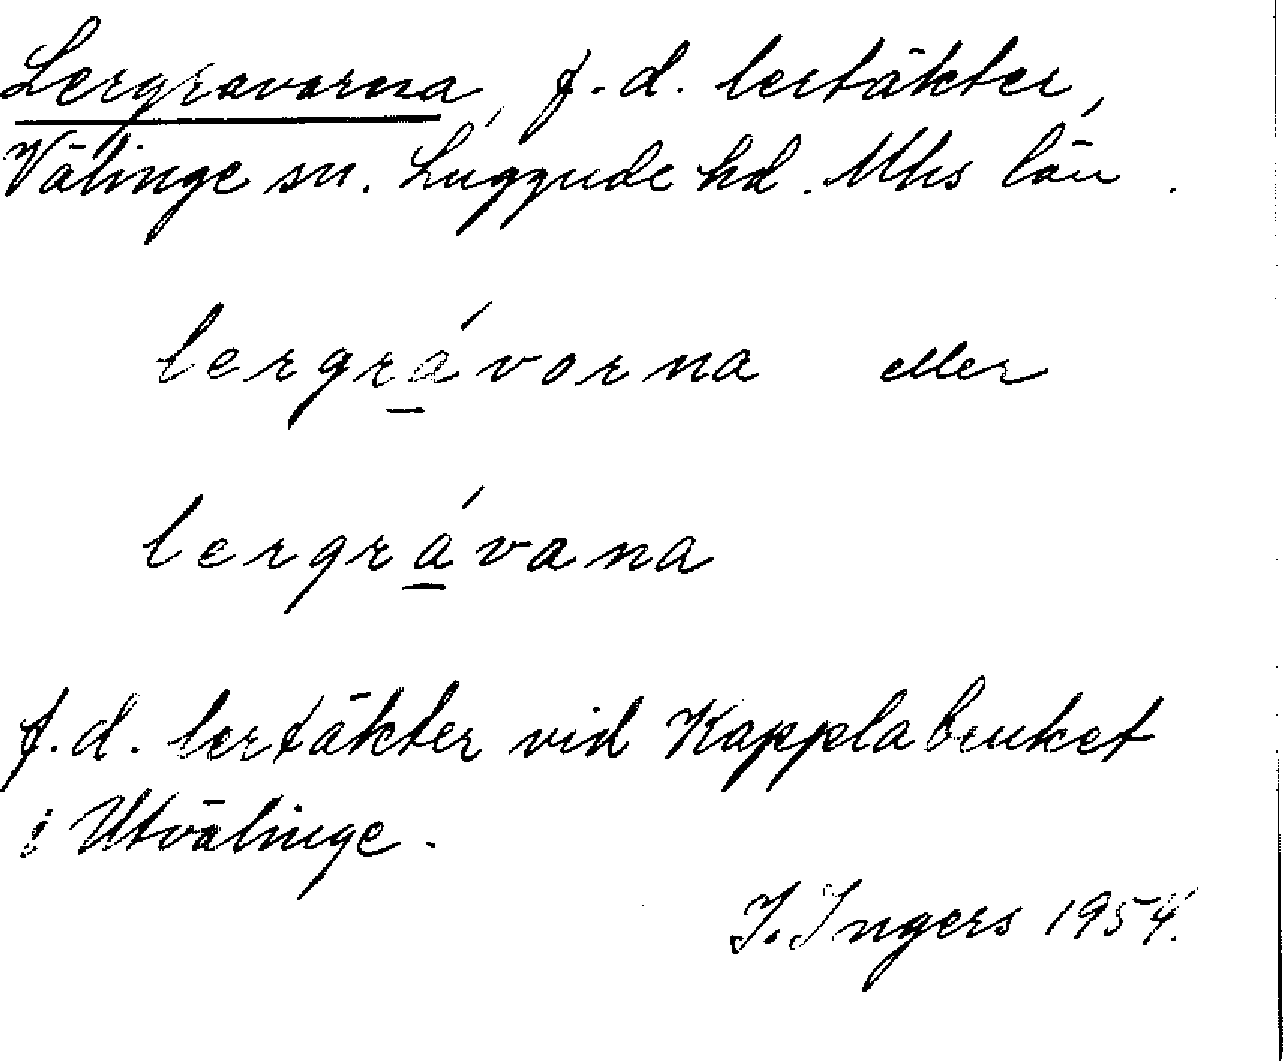 Lergravarna, f.d. lertäkter,
Välinge sn. Luggude hd. Mhs län.
lergrávorna eller
lergrávana
f.d. lertäkter vid Kapplabruket
i Utvälinge.
I. Ingers 1954.